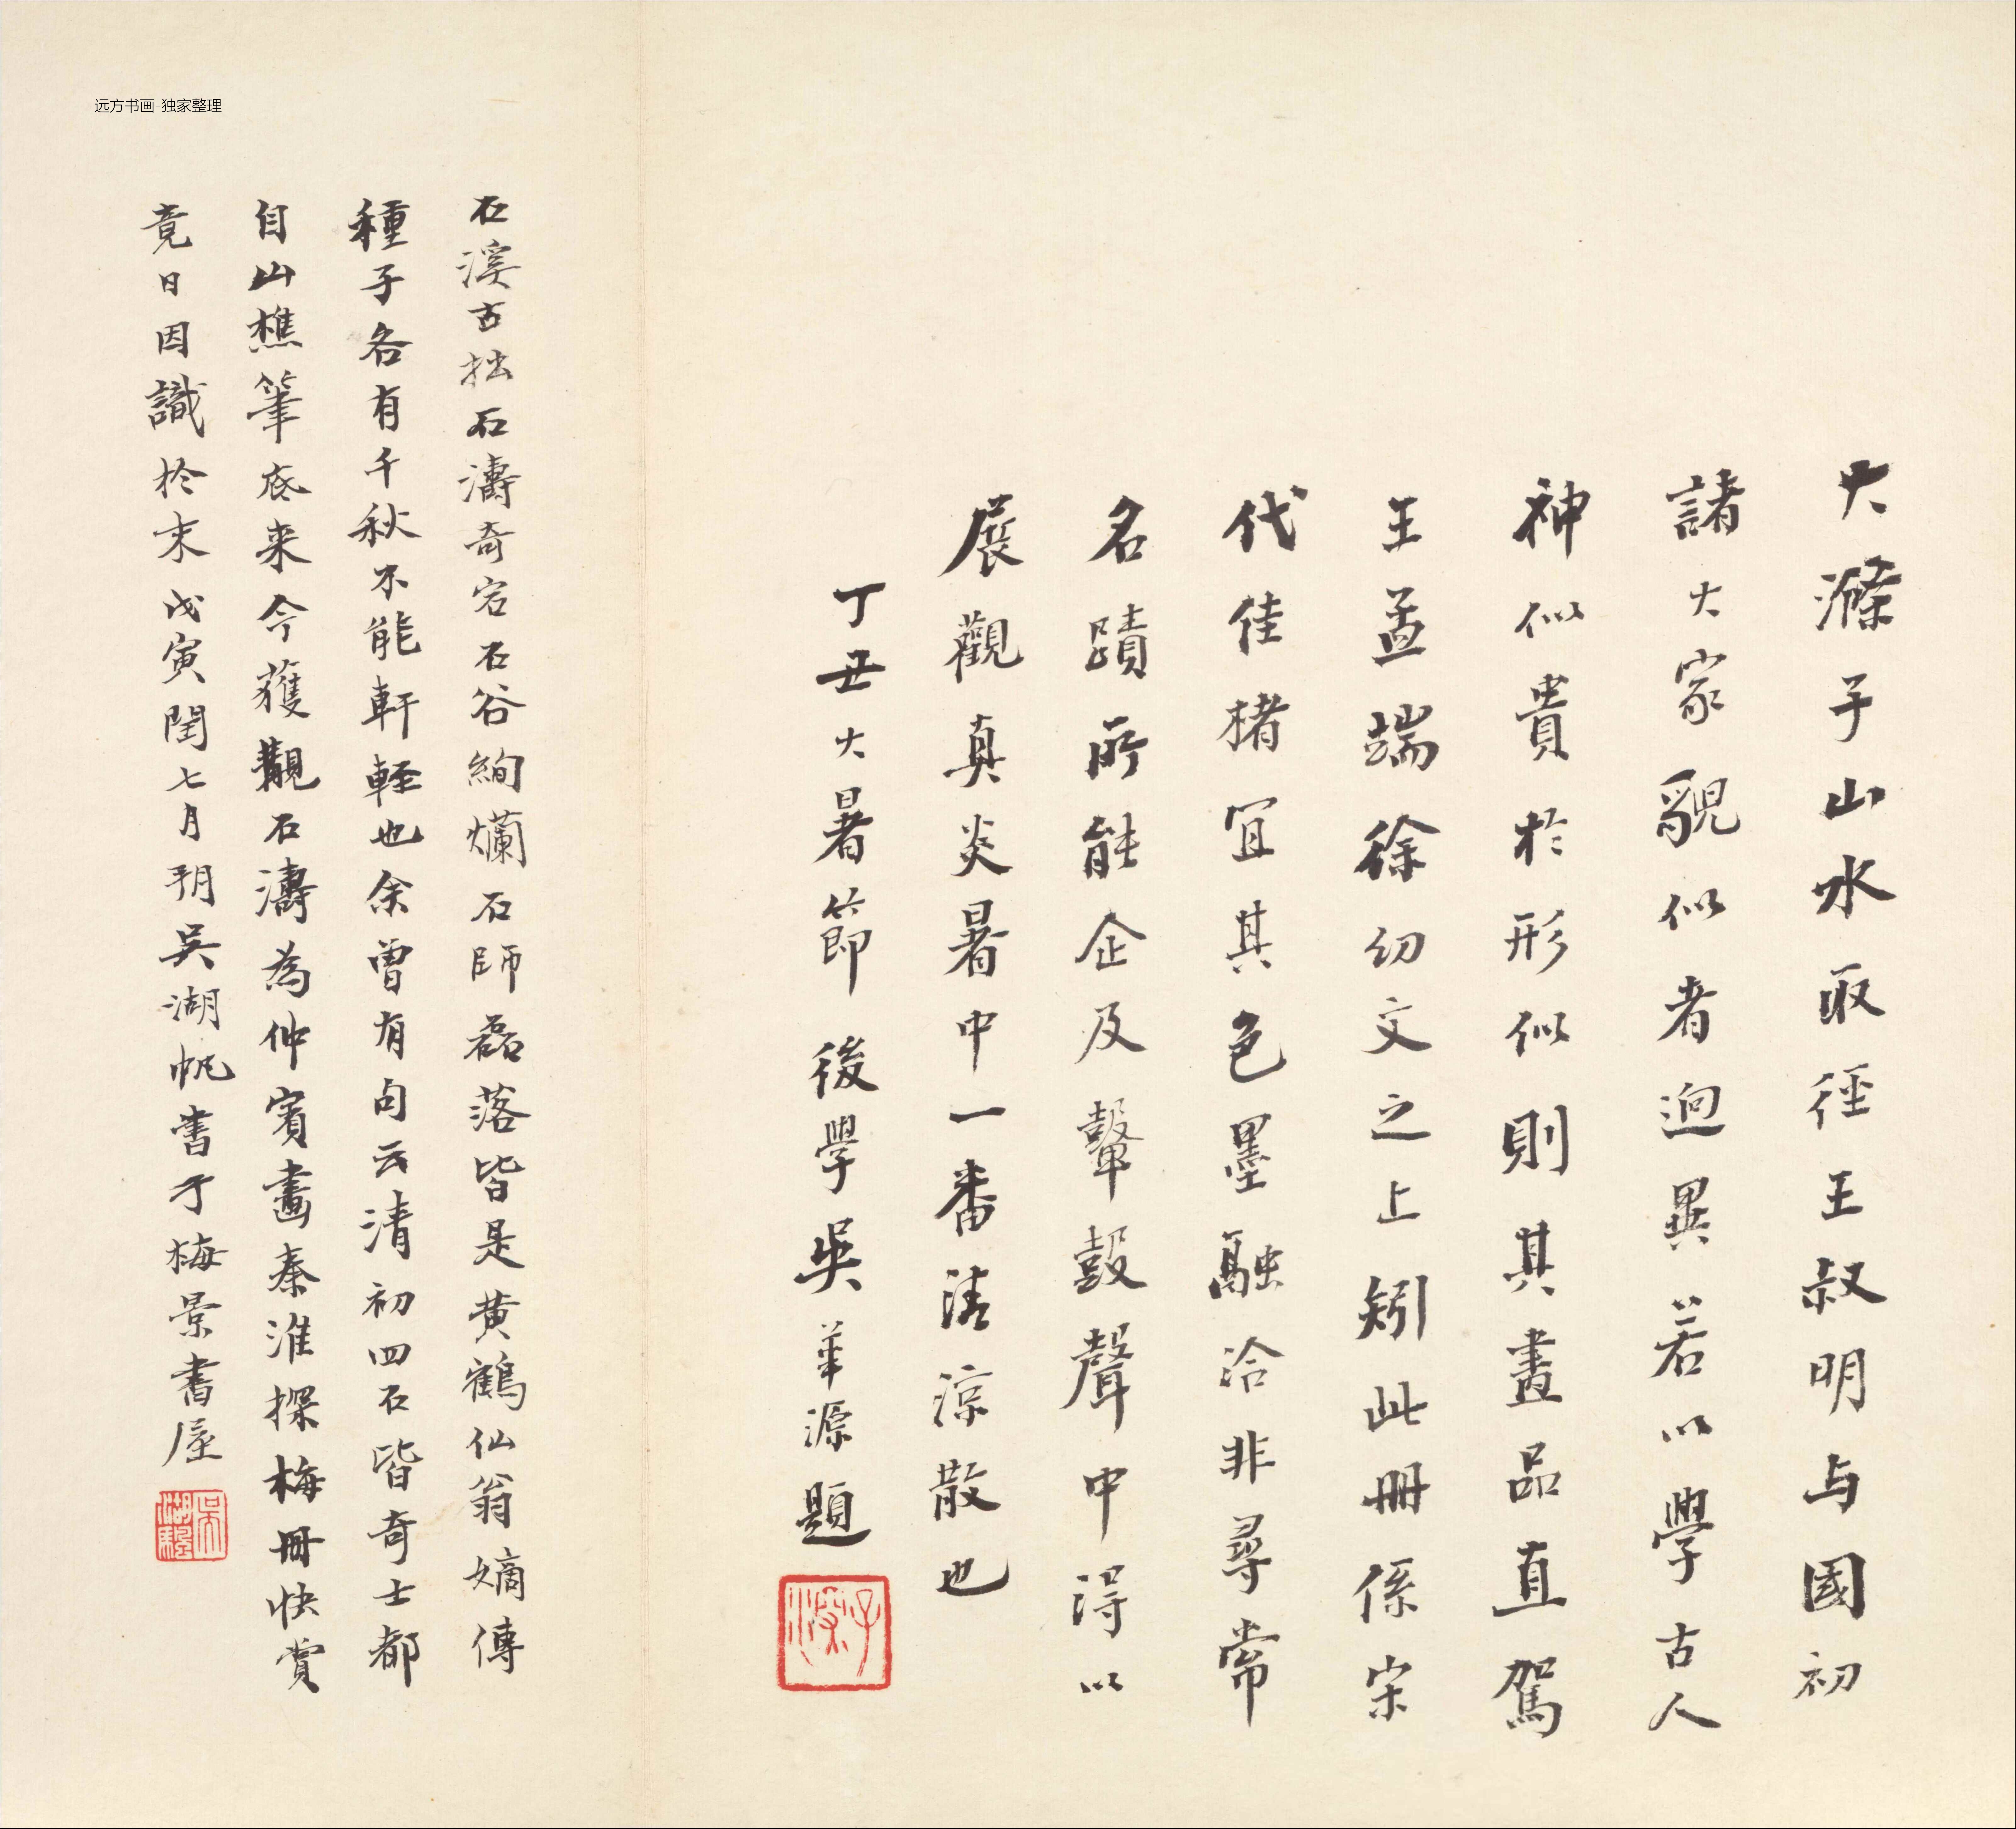 大滌子山水取徑王叔明与國初
諸大家貌似者迥異若以學古人
神似貴於形似則其畫品直駕
王孟端徐幼文之上矧此冊係宋
代佳楮宜其色墨融洽非尋常
名蹟所能企及鼙鼓聲中得以
展觀真炎暑中一番清涼散也
丁丑大暑節後學吳華源題
子深
石溪古拙石濤奇宕石谷絢爛石師磊落皆是黃鶴仙翁嫡傳
種子各有千秋不能軒輊也余曾有句云清初四石皆奇士都
自山樵筆底来今獲觀石濤為仲賓畫秦淮探梅冊快賞
竟日因識於末戊寅閏七月朔吳湖帆書于梅景書屋
吳湖颿
远方书画-独家整理